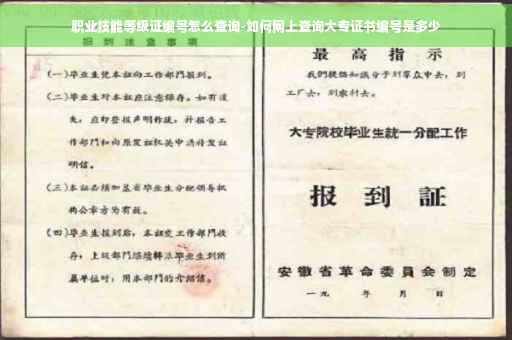 职业技能等级证编号怎么查询-如何网上查询大专证书编号是多少
报到注意事项
(一)毕业生凭本证向工作部门报到。
(二)毕业生对本证应注意保存。如有遗
失，应即登报声明作废，并报告工
作部门和向原发证机关申请补发证
明信。
(三)本证必须加盖省毕业生分配领导机
构公章方为有效。
(四)毕业生报到后，本证交工作部门收
存；上级部门
毕业生到所
属单位时，用本部门的介绍信。
最高指示
我们提倡知识分子到群众中去，到
工厂去，到农村去。
大专院校毕业生统一分配工作
报到证
安徽省革命委员会制定
一九 年 月 日